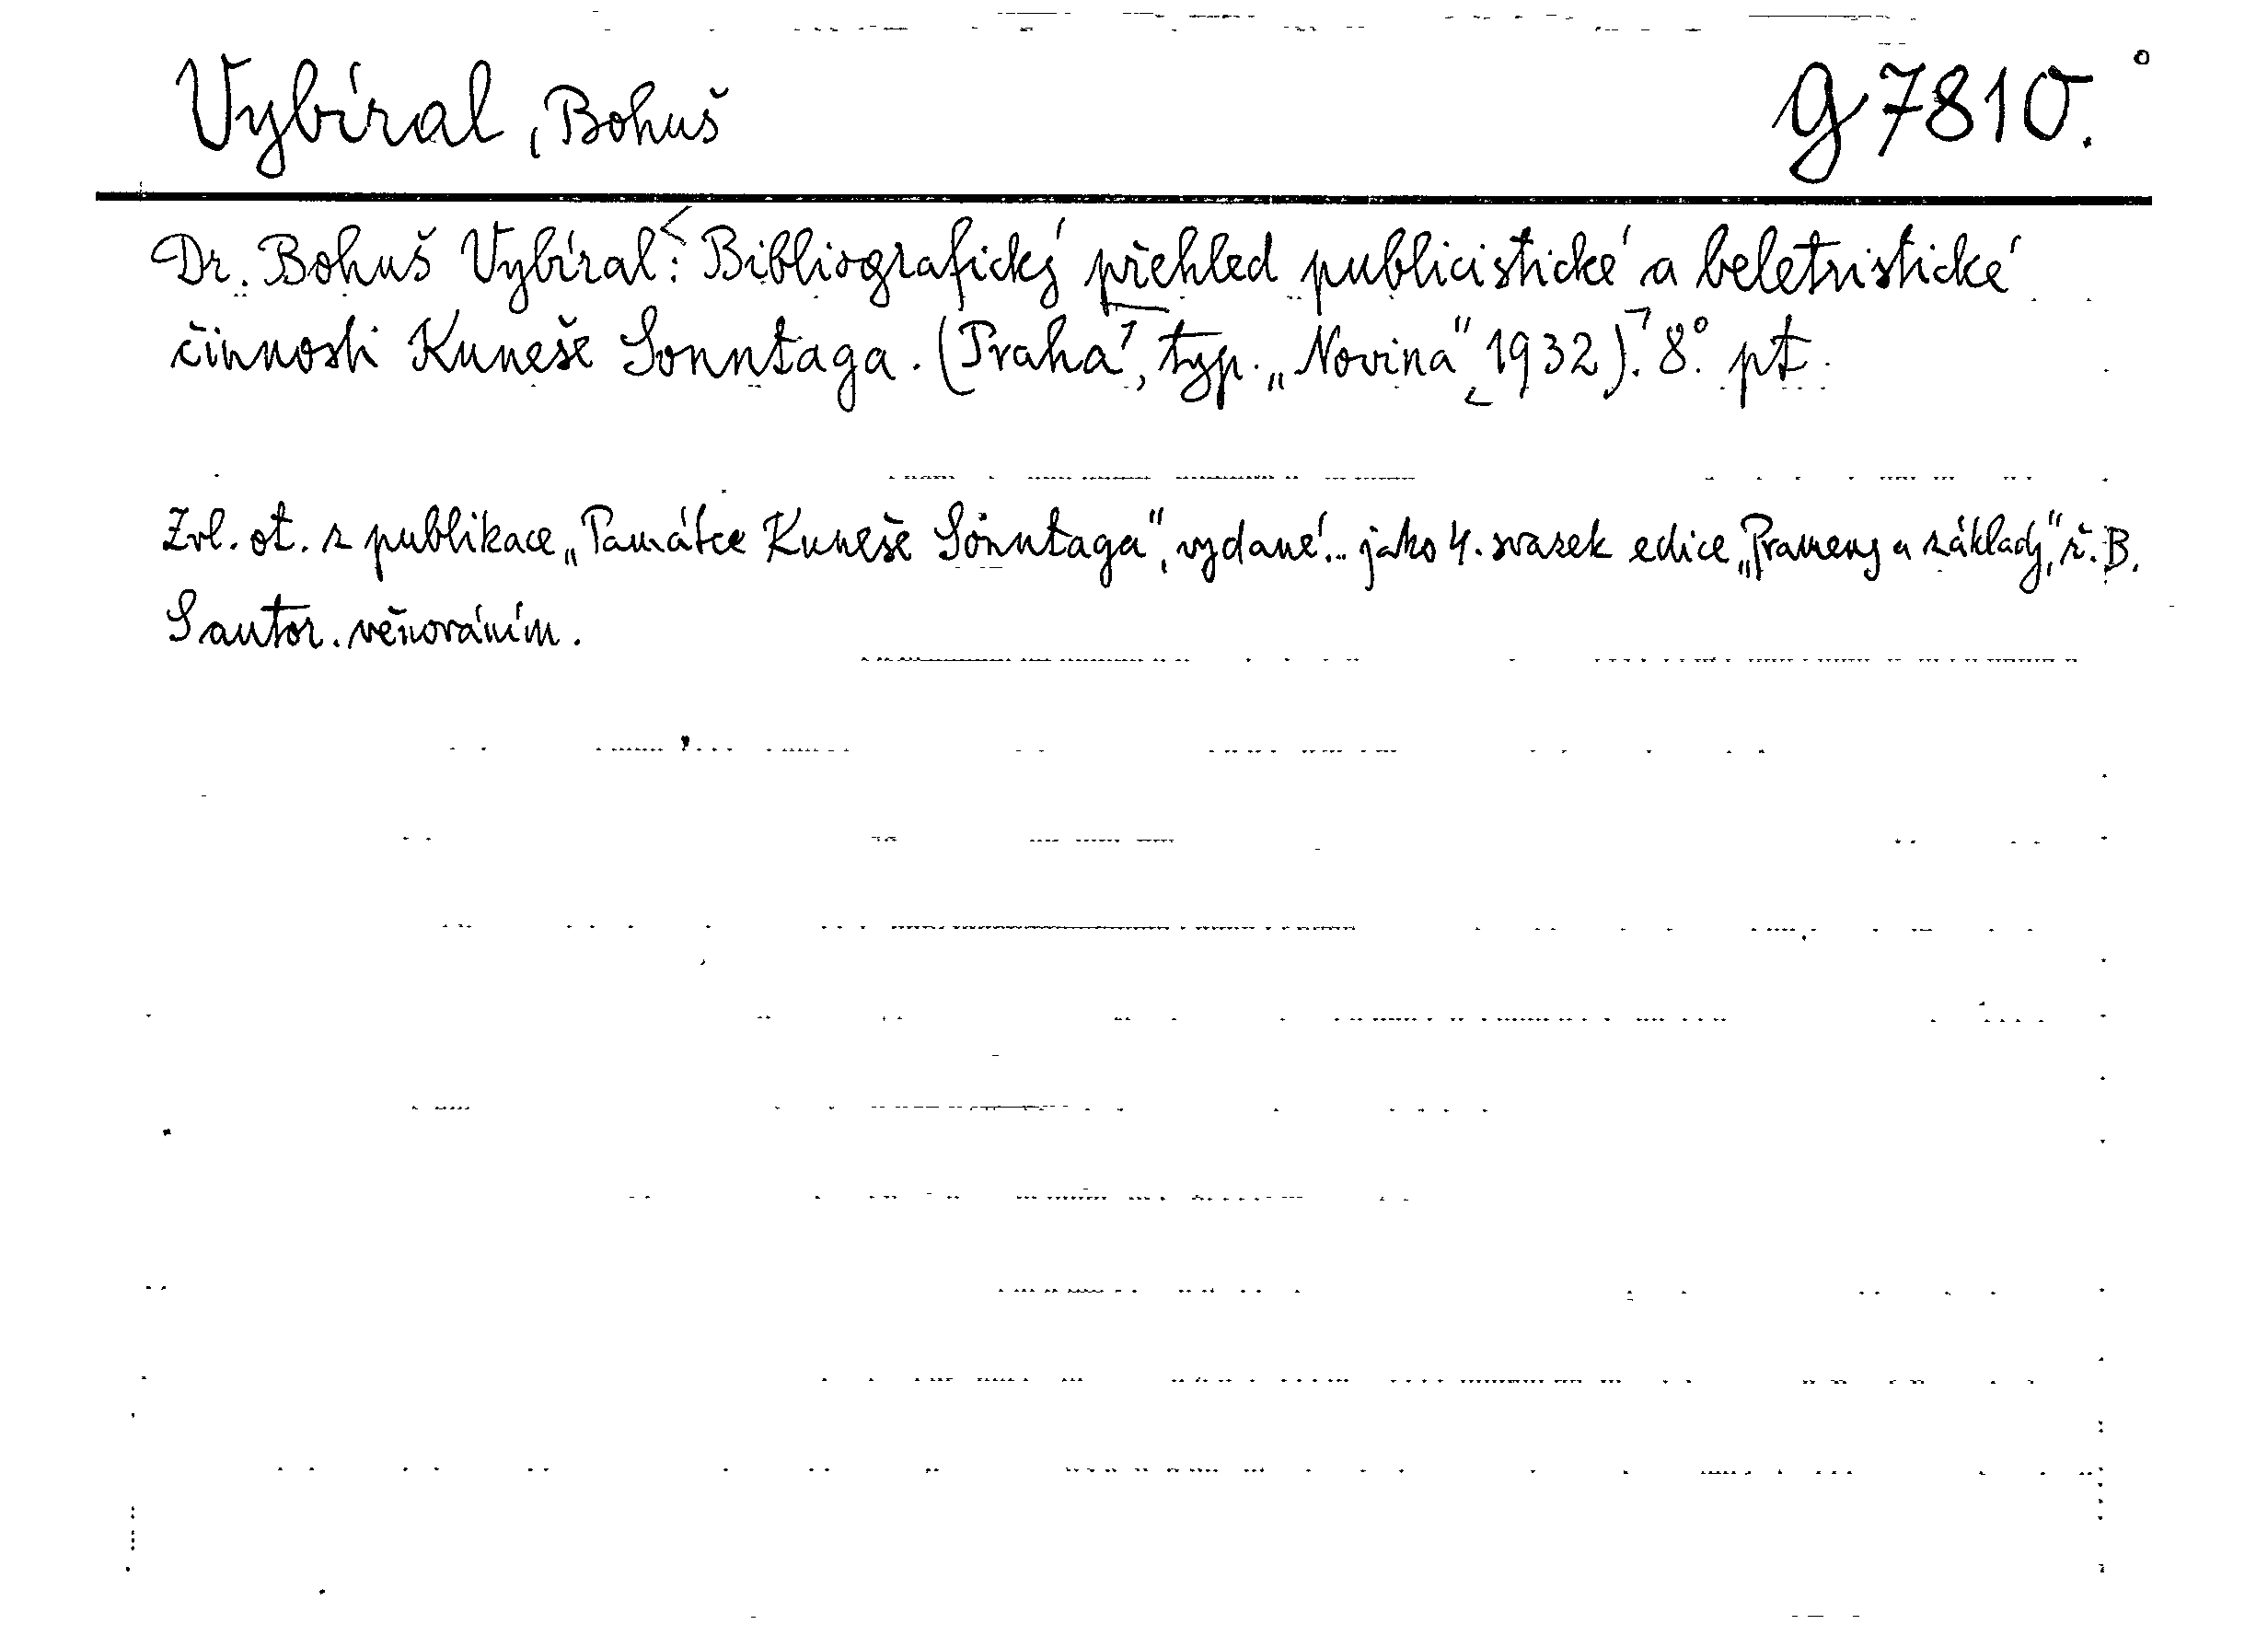 Vybíral, Bohuš g 7810.°
Dr. Bohuš Vybíral: Bibliografický přehled publicistické a beletristické
činnosti Kuneše Sonntaga. (Praha, typ. „Novina" 1932). 8°. pt.
Zvl. ot. z publikace „Památce Kuneše Sonntaga", vydané... jako 4. svazek edice „Prameny a základy", ř. B.
S autor. věnováním.